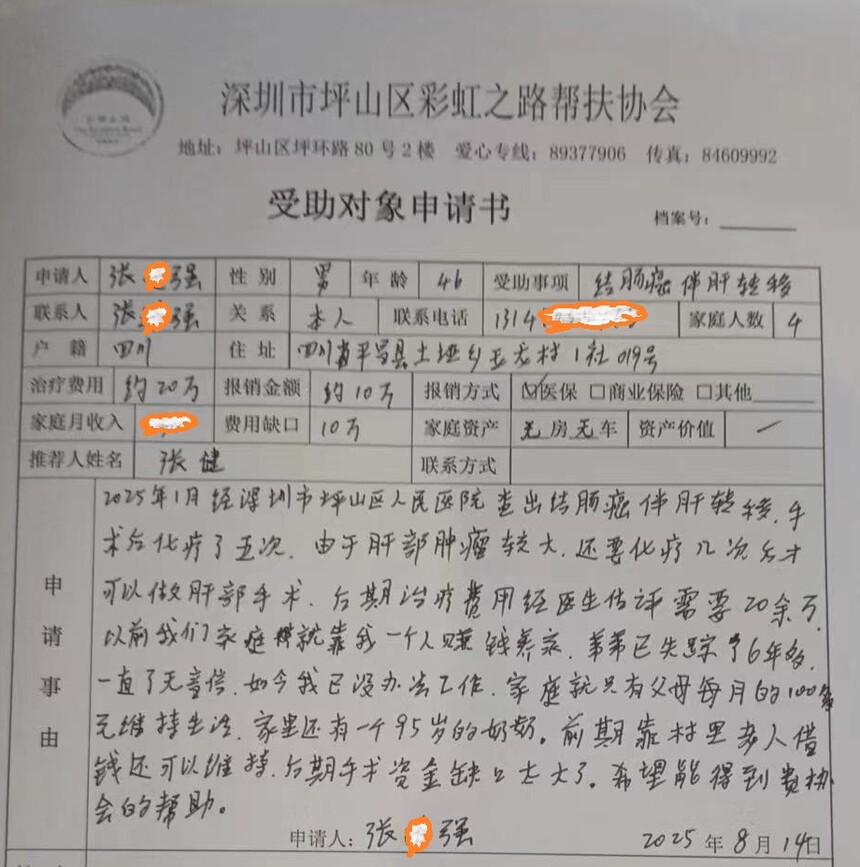 深圳市坪山区彩虹之路帮扶协会
地址：坪山区坪环路80号2楼 爱心专线：89377906 传真：84609992
受助对象申请书
档案号：
申请人 张 强 性别 男 年龄 46 受助事项 结肠癌伴肝转移
联系人 张 强 关系 本人 联系电话 1314 家庭人数 4
户籍 四川 住址 四川省平昌县土垭乡五龙村1社019号
治疗费用 约20万 报销金额 约10万 报销方式 ☑医保 □商业保险 □其他
家庭月收入 费用缺口 10万 家庭资产 无房无车 资产价值 /
推荐人姓名 张健 联系方式
申请事由
2025年1月经深圳市坪山区人民医院查出结肠癌伴肝转移，手
术后化疗了五次，由于肝部肿瘤较大，还要化疗几次后才
可以做肝部手术，后期治疗费用经医生估评需要20余万，
以前我们家庭就靠我一个人赚钱养家，弟弟已失踪了6年多，
一直了无音信，如今我已没办法工作，家庭就只有父母每月的100多
元维持生活，家里还有一个95岁的奶奶。前期靠村里乡人借
钱还可以维持，后期手术资金缺口太大了。希望能得到贵协
会的帮助。
申请人：张 强 2025年8月14日